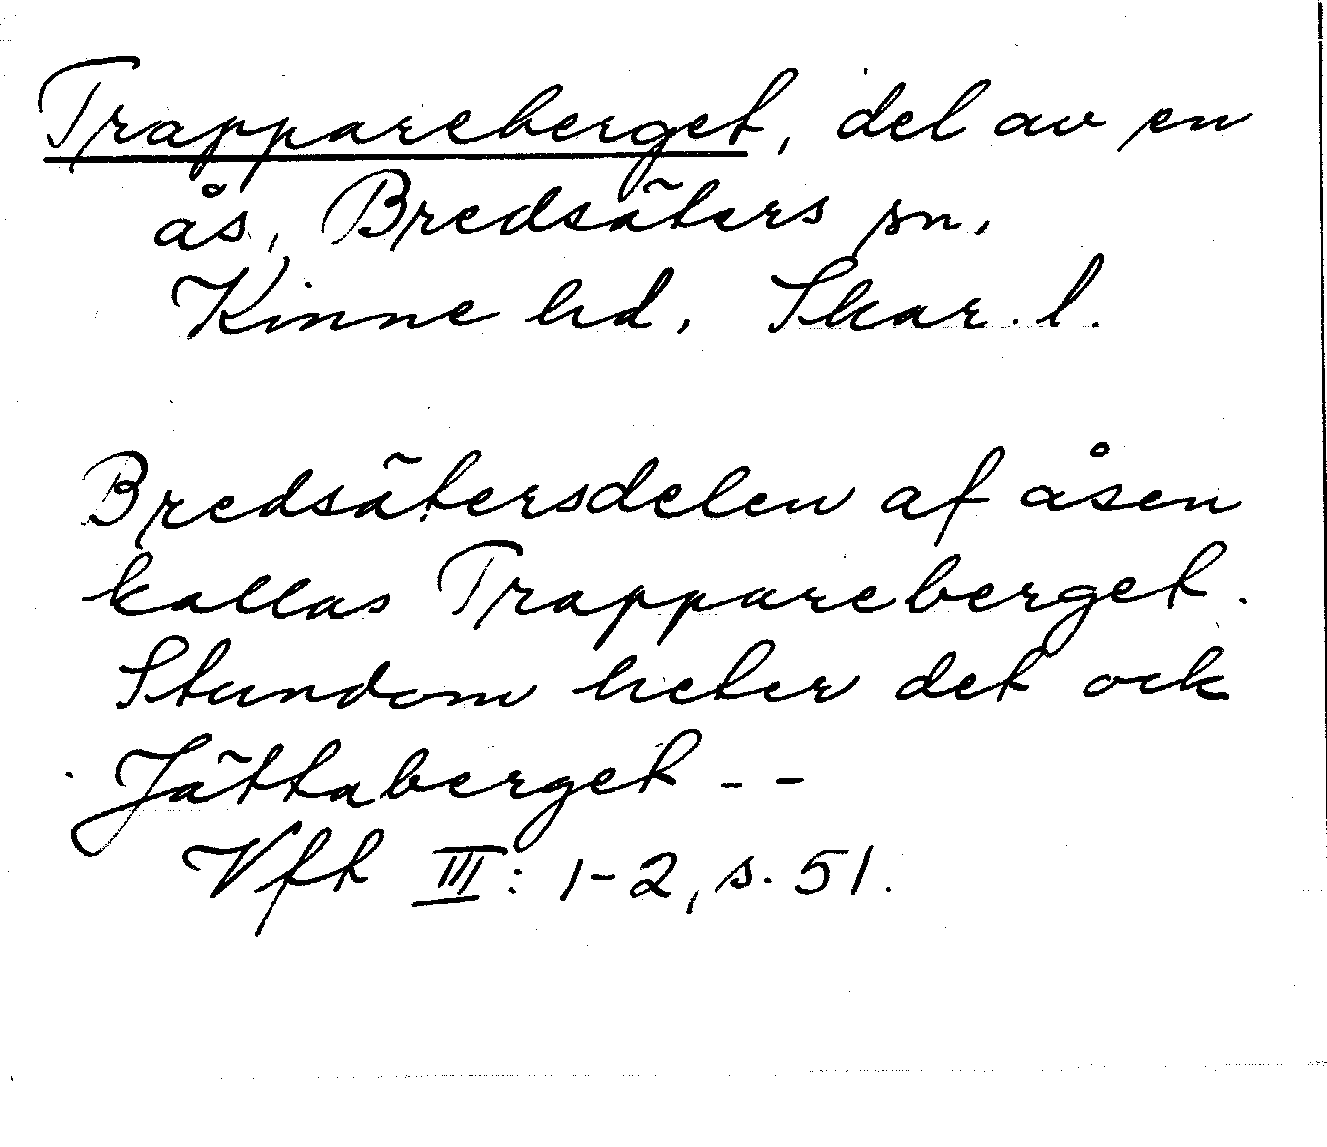 Trappareberget, del av en
ås, Bredsäters sn,
Kinne hd, Skar. l.
Bredsätersdelen af åsen
kallas Trappareberget.
Stundom heter det ock
Jättaberget - -
Vft III: 1-2, s. 51.